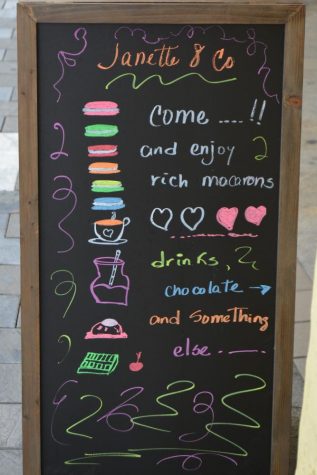 Janette & Co
Come ..... !!
and enjoy
rich macarons
drinks,
chocolate →
and something
else .----